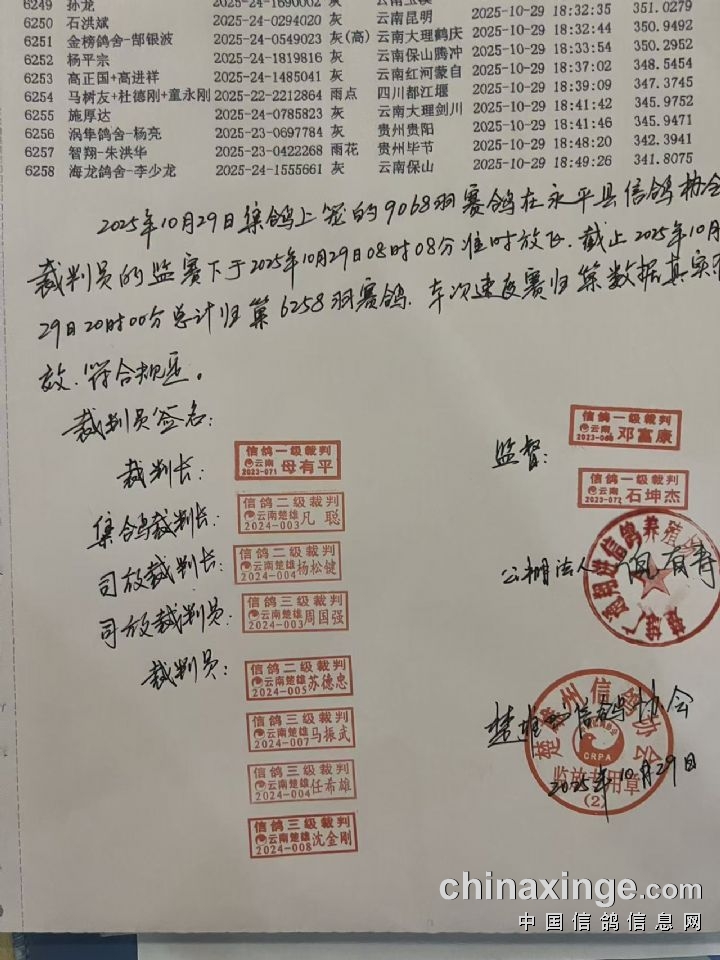 6249 孙龙 2025-24-1690002 灰 云南玉溪 2025-10-29 18:32:35 351.0279
6250 石洪斌 2025-24-0294020 灰 云南昆明 2025-10-29 18:32:44 350.9492
6251 金榜鸽舍-郜银波 2025-24-0549023 灰(高) 云南大理鹤庆 2025-10-29 18:33:54 350.2952
6252 杨平宗 2025-24-1819816 灰 云南保山腾冲 2025-10-29 18:37:02 348.5454
6253 高正国+高进祥 2025-24-1485041 灰 云南红河蒙自 2025-10-29 18:39:09 347.3745
6254 马树友+杜德刚+童永刚 2025-22-2212864 雨点 四川都江堰 2025-10-29 18:41:42 345.9752
6255 施厚达 2025-24-0785823 灰 云南大理剑川 2025-10-29 18:41:46 345.9471
6256 涡隼鸽舍-杨亮 2025-23-0697784 灰 贵州贵阳 2025-10-29 18:48:20 342.3941
6257 智翔-朱洪华 2025-23-0422268 雨花 贵州毕节 2025-10-29 18:49:26 341.8075
6258 海龙鸽舍-李少龙 2025-24-1555661 灰 云南保山
2025年10月29日集鸽上笼的9068羽赛鸽在永平县信鸽协会
裁判员的监赛下于2025年10月29日08时08分准时放飞.截止2025年10月
29日20时00分总计归巢6258羽赛鸽.本次速度赛归巢数据真实有
效.符合规定。
裁判员签名:
裁判长:
信鸽一级裁判
云南
2023-071 母有平
集鸽裁判长:
信鸽二级裁判
云南楚雄
2024-003 凡聪
司放裁判长:
信鸽二级裁判
云南楚雄
2024-004 杨松键
司放裁判员:
信鸽三级裁判
云南楚雄
2024-003 周国强
裁判员:
信鸽二级裁判
云南楚雄
2024-005 苏德忠
信鸽三级裁判
云南楚雄
2024-007 马振武
信鸽三级裁判
云南楚雄
2024-004 任希雄
信鸽三级裁判
云南楚雄
2024-008 沈金刚
监督:
信鸽一级裁判
云南
2023-068 邓富康
信鸽一级裁判
云南
2023-072 石坤杰
公棚法人
信鸽养殖
楚雄州信鸽协会
CRPA
监放专用章
(2)
楚雄州信鸽协会
2025年10月29日
chinaxinge.com
中国信鸽信息网